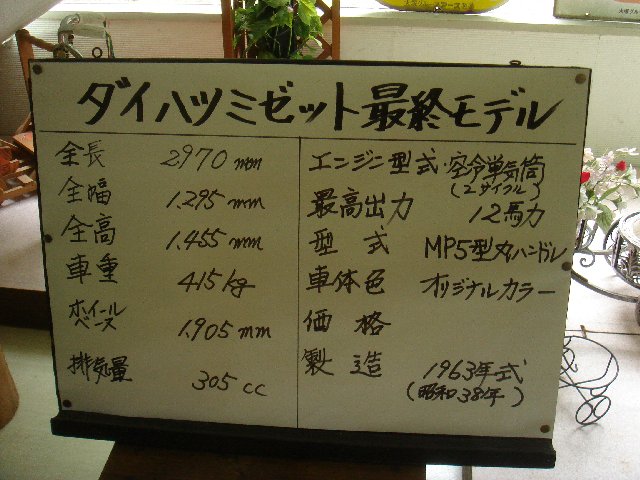 ダイハツミゼット最終モデル
全長 2,970 mm
全幅 1,295 mm
全高 1,455 mm
車重 415 kg
ホイールベース 1,905 mm
排気量 305 cc
エンジン型式・空冷単気筒
(2サイクル)
最高出力 12馬力
型式 MP5型丸ハンドル
車体色 オリジナルカラー
価格
製造 1963年式
(昭和38年)